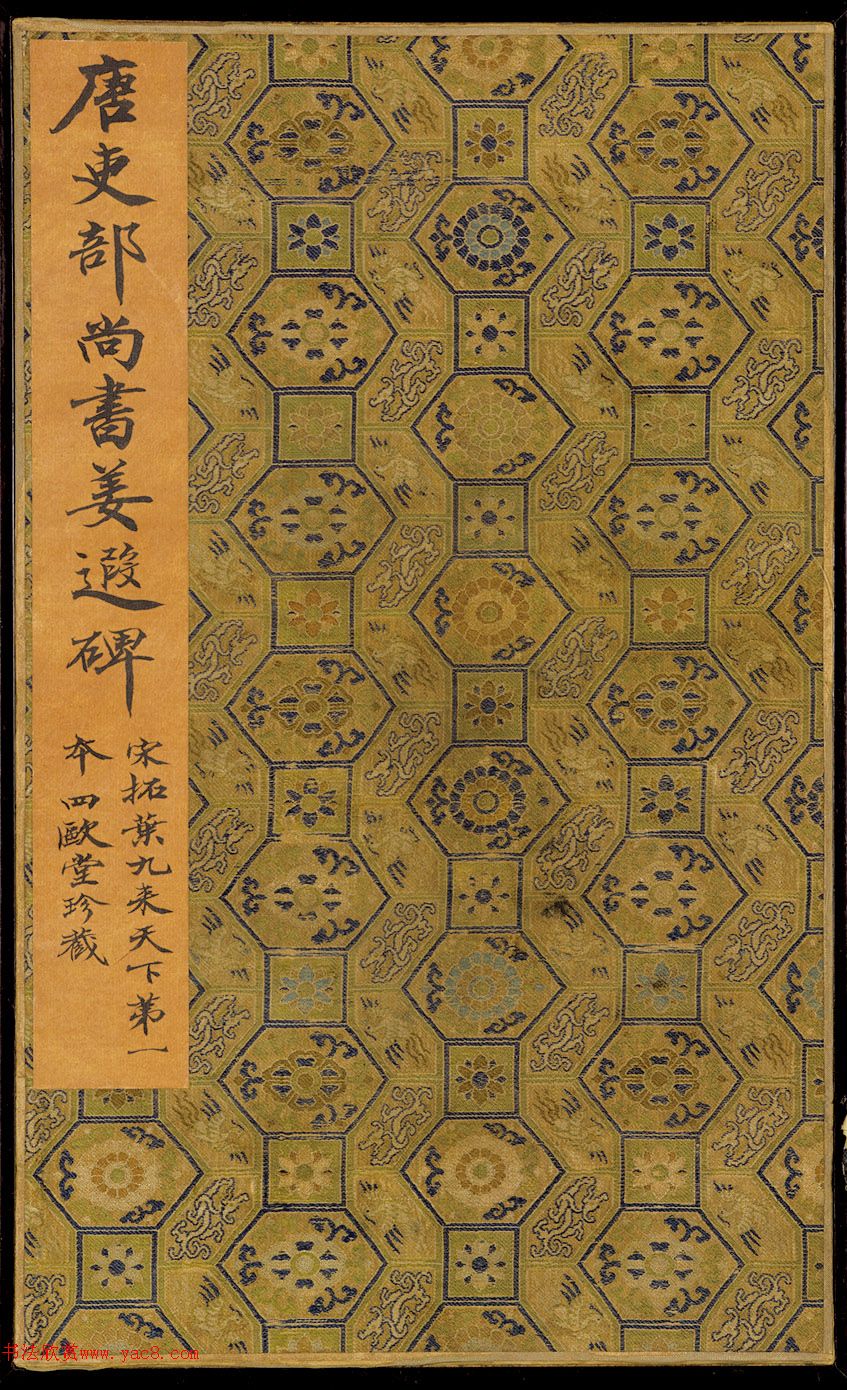 唐吏部尚書姜遐碑
宋拓葉九来天下第一
本四歐堂珍藏
书法欣赏www.yac8.com